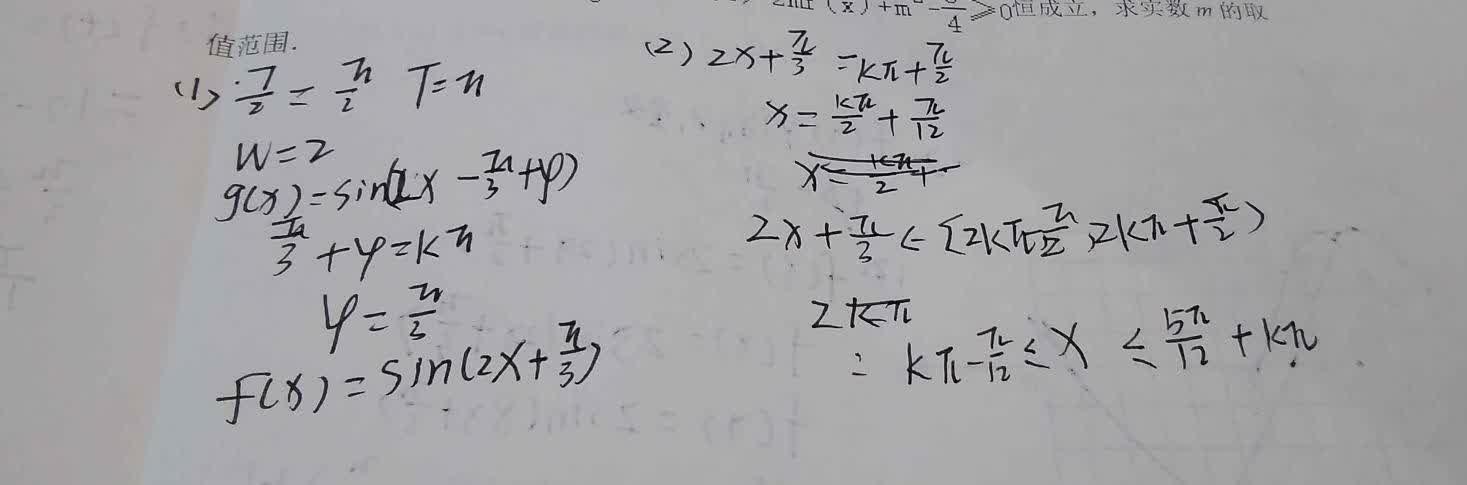 (x)+m²-/4≥0恒成立，求实数m的取
值范围.
(1) T/2 = π/2 T=π
W=2
g(x)=sin(2x-π/3+φ)
π/3+φ=kπ
φ=π/3
f(x)=sin(2x+π/3)
(2) 2x+π/3=kπ+π/2
x=kπ/2+π/12
2x+π/3∈[2kπ-π/2,2kπ+π/2)
2kπ
: kπ-π/12≤x≤5π/12+kπ